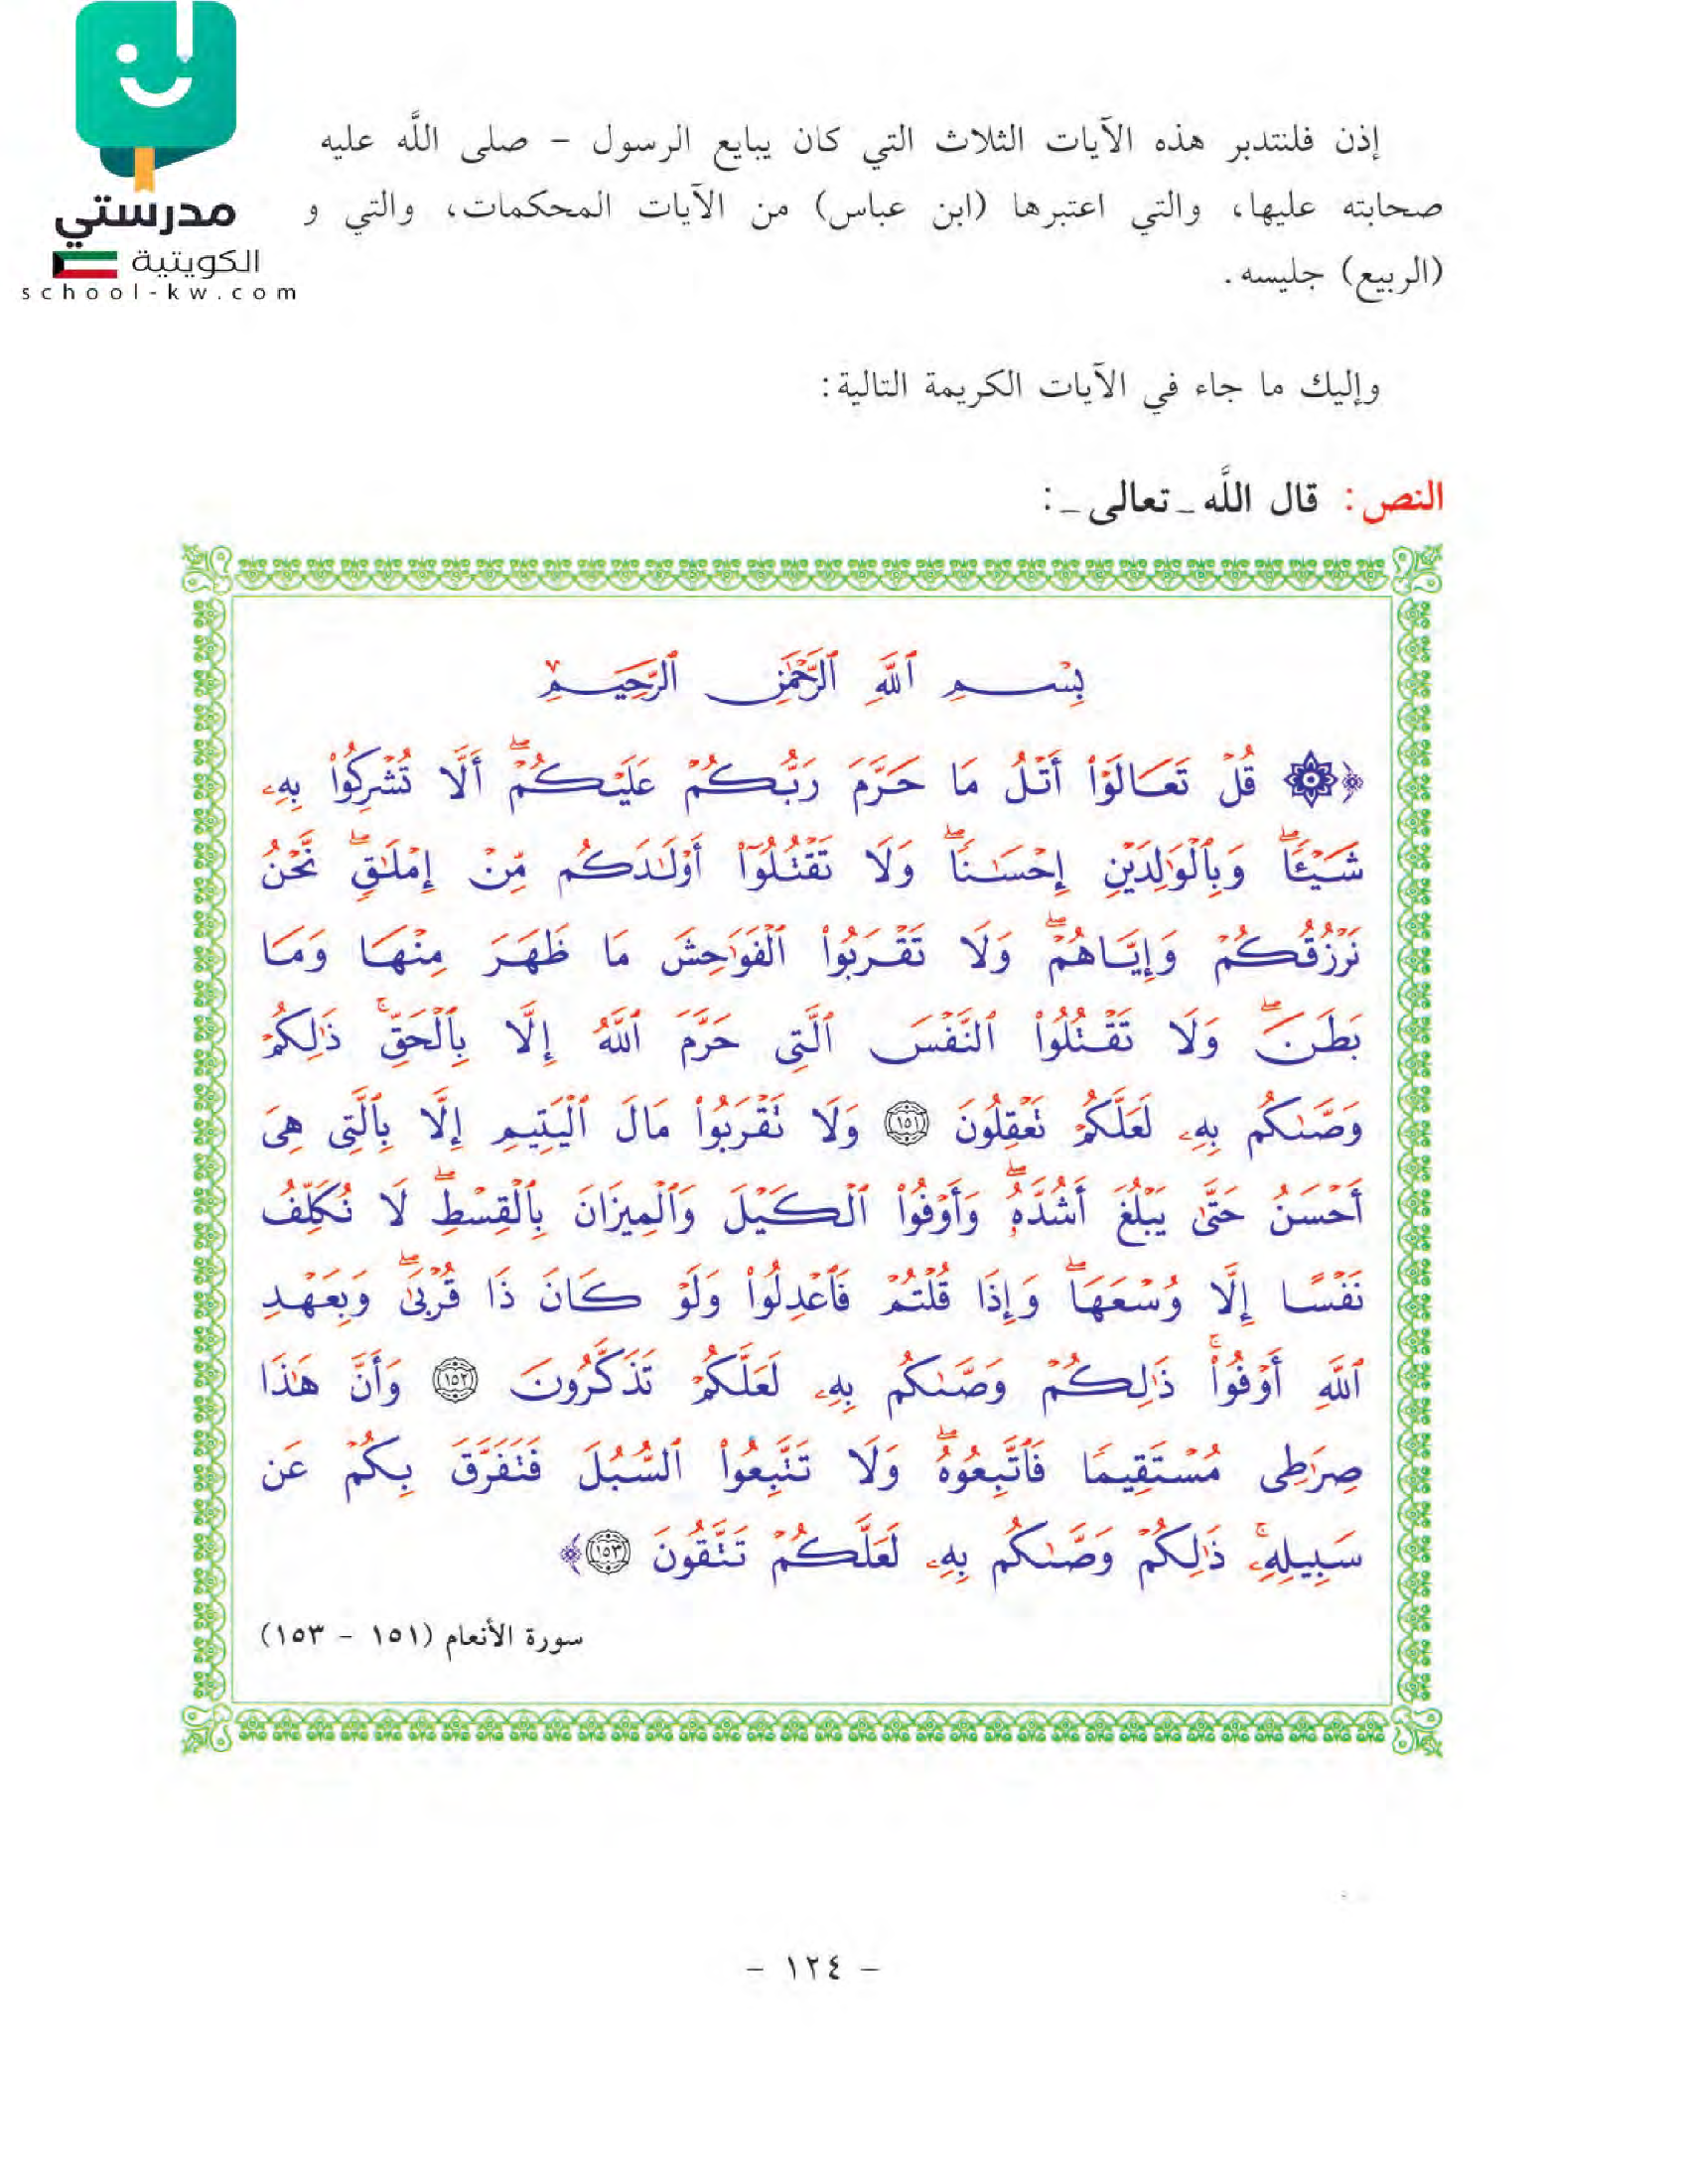 مدرستي
الكويتية
school-kw.com
إذن فلنتدبر هذه الآيات الثلاث التي كان يبايع الرسول – صلى اللَّه عليه
صحابته عليها، والتي اعتبرها (ابن عباس) من الآيات المحكمات، والتي و
(الربيع) جليسه.
وإليك ما جاء في الآيات الكريمة التالية:
النص: قال اللَّه _ تعالى _:
بِسْمِ ٱللَّهِ ٱلرَّحْمَٰنِ ٱلرَّحِيمِ
﴿۞ قُلْ تَعَالَوْا۟ أَتْلُ مَا حَرَّمَ رَبُّكُمْ عَلَيْكُمْ ۖ أَلَّا تُشْرِكُوا۟ بِهِۦ
شَيْـًٔا ۖ وَبِٱلْوَٰلِدَيْنِ إِحْسَٰنًا ۖ وَلَا تَقْتُلُوٓا۟ أَوْلَٰدَكُم مِّنْ إِمْلَٰقٍ ۖ نَّحْنُ
نَرْزُقُكُمْ وَإِيَّاهُمْ ۖ وَلَا تَقْرَبُوا۟ ٱلْفَوَٰحِشَ مَا ظَهَرَ مِنْهَا وَمَا
بَطَنَ ۖ وَلَا تَقْتُلُوا۟ ٱلنَّفْسَ ٱلَّتِى حَرَّمَ ٱللَّهُ إِلَّا بِٱلْحَقِّ ۚ ذَٰلِكُمْ
وَصَّىٰكُم بِهِۦ لَعَلَّكُمْ تَعْقِلُونَ ١٥١ وَلَا تَقْرَبُوا۟ مَالَ ٱلْيَتِيمِ إِلَّا بِٱلَّتِى هِىَ
أَحْسَنُ حَتَّىٰ يَبْلُغَ أَشُدَّهُۥ ۖ وَأَوْفُوا۟ ٱلْكَيْلَ وَٱلْمِيزَانَ بِٱلْقِسْطِ ۖ لَا نُكَلِّفُ
نَفْسًا إِلَّا وُسْعَهَا ۖ وَإِذَا قُلْتُمْ فَٱعْدِلُوا۟ وَلَوْ كَانَ ذَا قُرْبَىٰ ۖ وَبِعَهْدِ
ٱللَّهِ أَوْفُوا۟ ۚ ذَٰلِكُمْ وَصَّىٰكُم بِهِۦ لَعَلَّكُمْ تَذَكَّرُونَ ١٥٢ وَأَنَّ هَٰذَا
صِرَٰطِى مُسْتَقِيمًا فَٱتَّبِعُوهُ ۖ وَلَا تَتَّبِعُوا۟ ٱلسُّبُلَ فَتَفَرَّقَ بِكُمْ عَن
سَبِيلِهِۦ ۚ ذَٰلِكُمْ وَصَّىٰكُم بِهِۦ لَعَلَّكُمْ تَتَّقُونَ ١٥٣﴾
سورة الأنعام (١٥١ – ١٥٣)
– ١٢٤ –